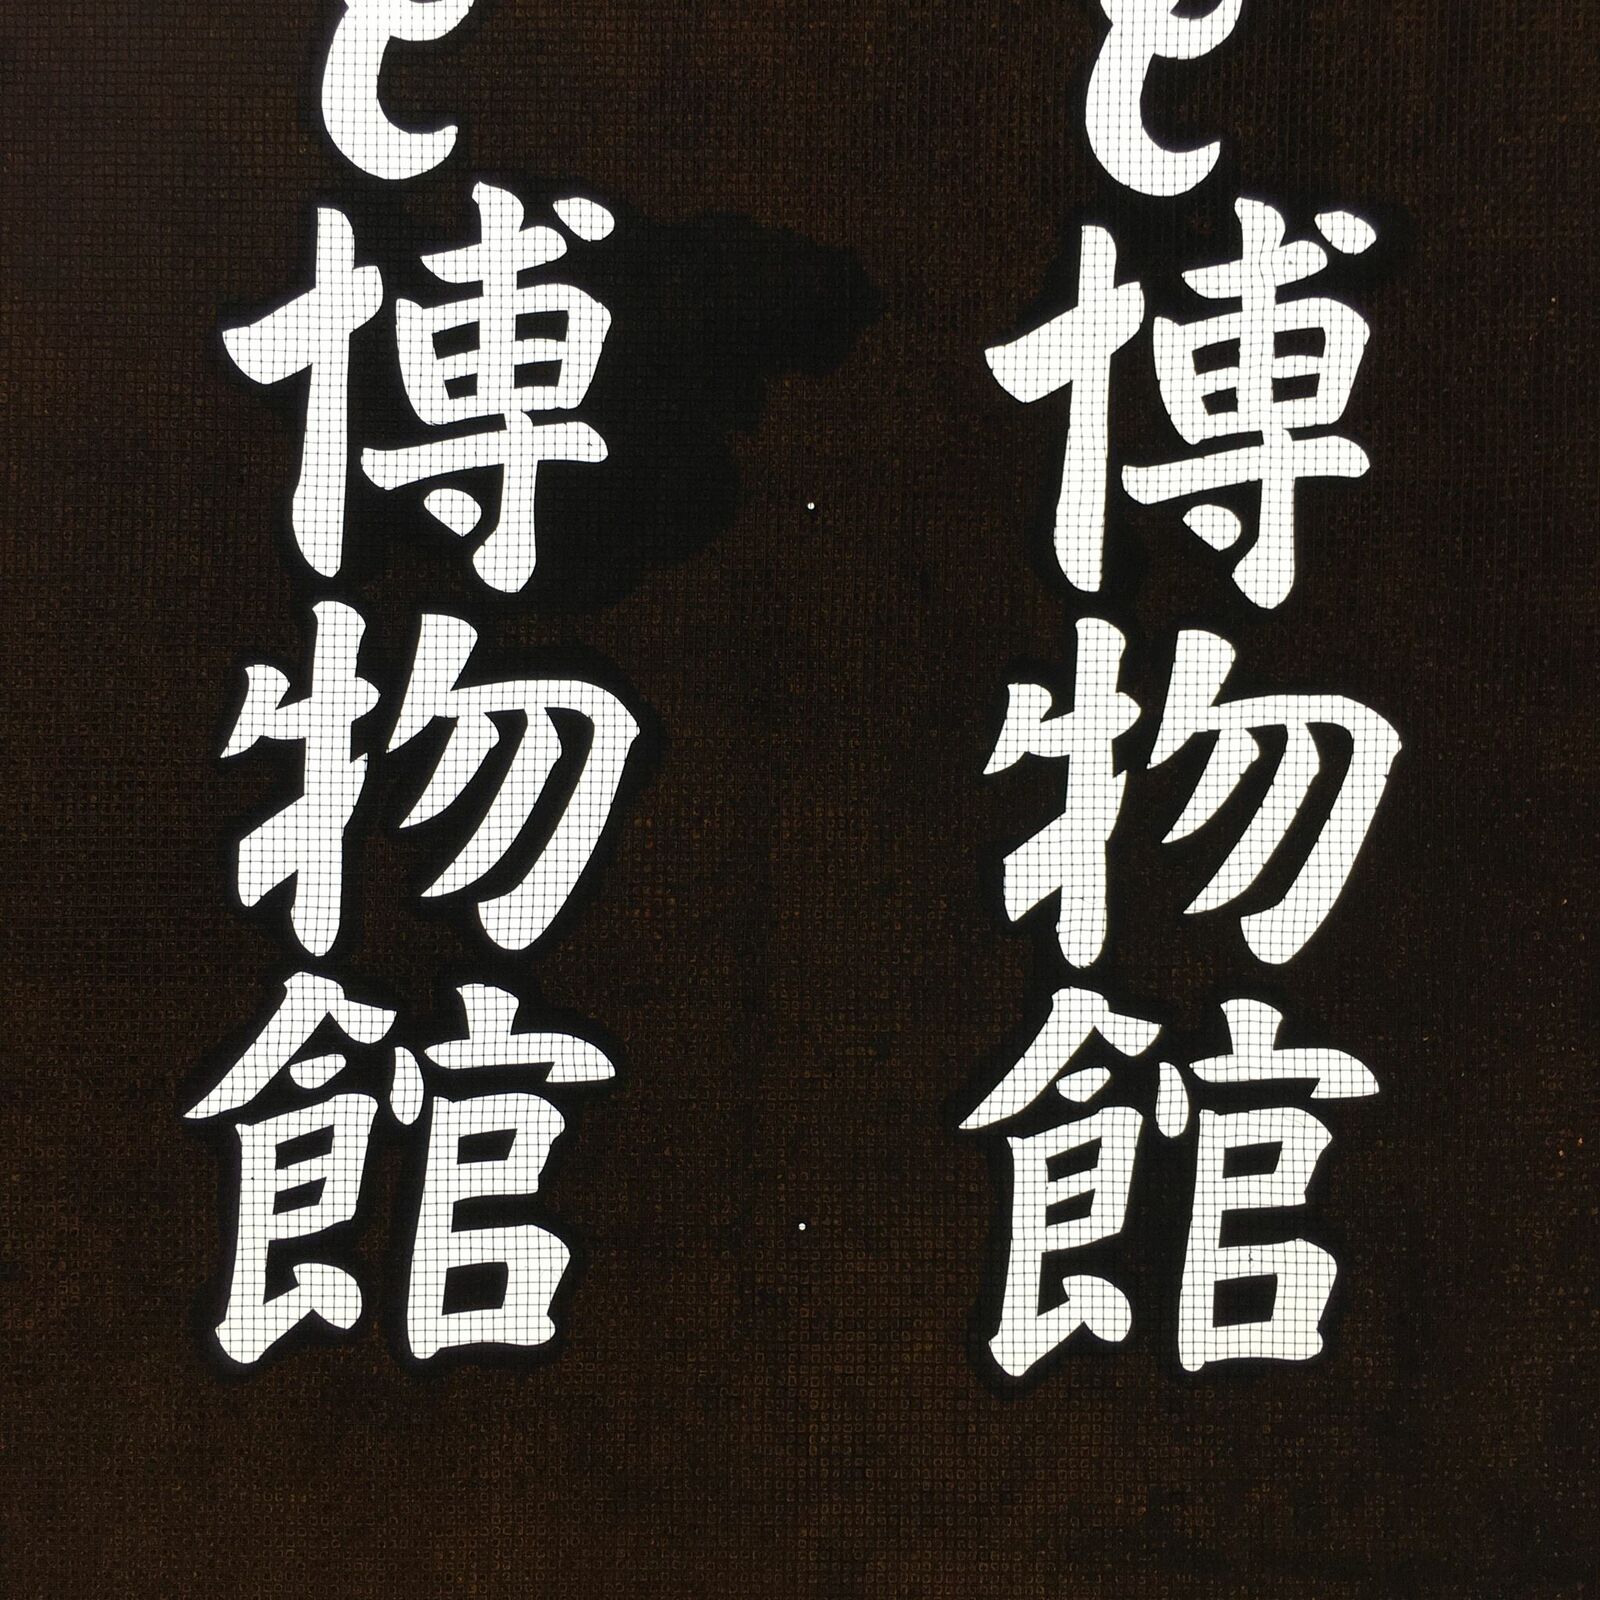 博物館
博物館